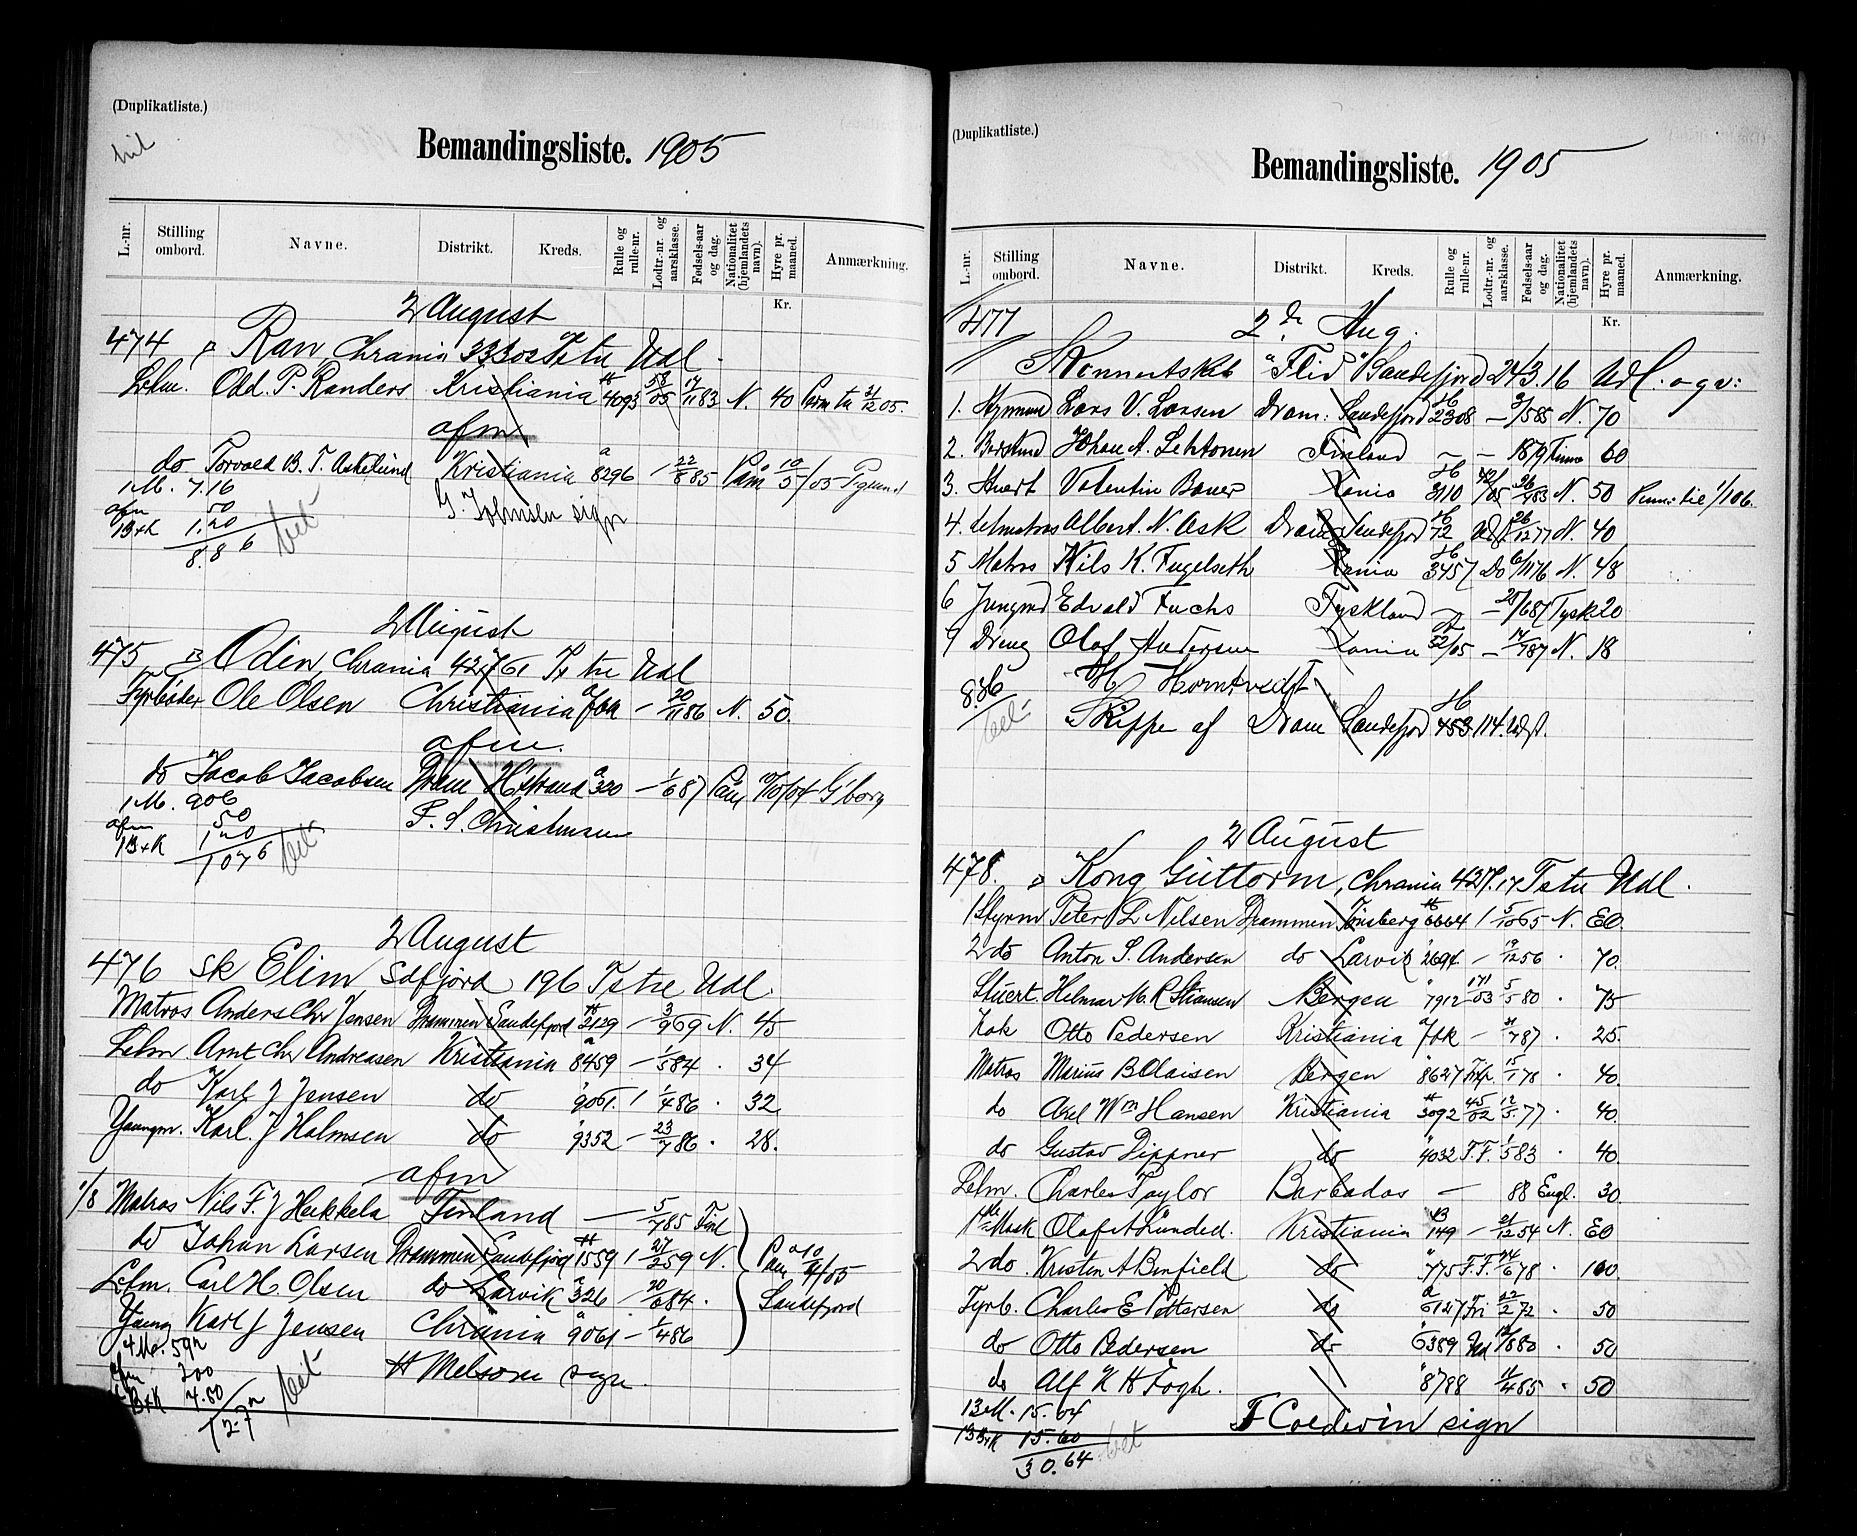 (Duplikatliste.)
Bemandingsliste. 1905
L.-nr. Stilling ombord. Navne. Distrikt. Kreds. Rulle og rulle-nr. Lodtr.-nr. og aarsklasse. Fødsels-aar og dag. Nationalitet (hjemlandets navn). Hyre pr. maaned. Anmærkning.
Kr.
2 August
474 Ran, Chrania 333 Udl
Lelm. Odd. P. Randers Kristiania 4093 58/05 17/11 83 N. 40 21/12 05.
afm
do Torvald B. T. Askelund Kristiania 8296 1 22/8 85 Pam 10/5/05
1 M. 7.16
afm 50
1 B+K 1.20
8.86
J. Johnsen sign
2 August
475 Odin, Chrania Udl
Fyrbøder Ole Olsen Christiania fbk – 20/11 86 N. 50.
afm.
do Jacob Jacobsen Dram 320 – 1/6 87 Gborg
1 M. 906
afm 50
1 B+K 120
1076
2 August
476 sk Elim Sdfjord 196 Udl.
Matros Anders Chr Jensen Drammen Sandefjord 2129 – 3/9 69 N. 45
Lelm. Arnt Chr Andreasen Kristiania 8459 – 1/5 84 . 34
do Karl J Jensen do 9061. 1 1/4 86 . 32
Youngm. Karl. J Halmsen do 9352 – 23/7 86 . 28.
afm
1/8 Matros Nils F. J Heikkela Finland — 5/7 85 Finl
do Johan Larsen Drammen Sandefjord 1559 1 27/2 59 N.
Lelm. Carl H. Olsen do Larvik 326 – 20/6 84 . Sandefjord
Young Karl J Jensen Chrania 9061 – 1/4 86
4 M. 592
afm 200
B+K 4.80
H Melsom sign.
(Duplikatliste.)
Bemandingsliste. 1905
L.-nr. Stilling ombord. Navne. Distrikt. Kreds. Rulle og rulle-nr. Lodtr.-nr. og aarsklasse. Fødsels-aar og dag. Nationalitet (hjemlandets navn). Hyre pr. maaned. Anmærkning.
Kr.
477 2 Aug.
Skonnertskib "Flid" Sandefjord 243.16 Udl.
1. Styrmand Lars V. Larsen Dram: Sandefjord 2308 N. 70
2. Johan A. Lehtonen Finland — – 1879 60
3. Stuert Valentin Bauer Xania 3110 N. 50
4. Letmatros Albert. N. Ask Dram Sandefjord 72 26/12 77 N. 40
5 Matros Nils K. Fugelseth Xania 3457 Do 6/11 76 N. 48
6 Jungmd Edvald Fuchs Tyskland Tysk 20
7 Dreng Olaf Andersen Xania 52/05 – 14/7 87 N. 18
8.36
H Horntvedt
Skipper af Dram Sandefjord 453.
2 August
478. Kong Guttorm, Chrania Udl.
1 Styrm Peter L Nilsen Drammen Tønsberg 6664 1 5/10 65 N. 80.
2 do Anton S. Andersen do Larvik 2694 – 19/12 56 . 70.
Stuert. Helmar M. R Stiansen Bergen 7912 171/03 5/5 80 . 75
Kok Otto Pedersen Kristiania fbk – 31/7 87 . 25.
Matros Marius B Olaisen Bergen 8627 15/1 78 . 40.
do Axel Wm Hansen Kristiania 3092 45/02 12/5 77 . 40.
do Gustav Dippner do 4032 F.F. 1/5 83 . 40.
Lelm. Charles Taylor Barbados — 88 Engl. 30
1ste Mask Olaf A Lunded. Kristiania 149 – 21/12 54 N.
2 do. Kristen A Benfield do 775 F.F. 24/6 78 . 100.
Fyrb. Charles E Pettersen do 6127 Fri 22/2 72 . 50
do Otto Pedersen do 6389 80 . 50
do Alf K H Fogh. 8788 11/4 85 . 50
13 M. 15.04
13 B+K 15.60
30.64
F Coldevin sign